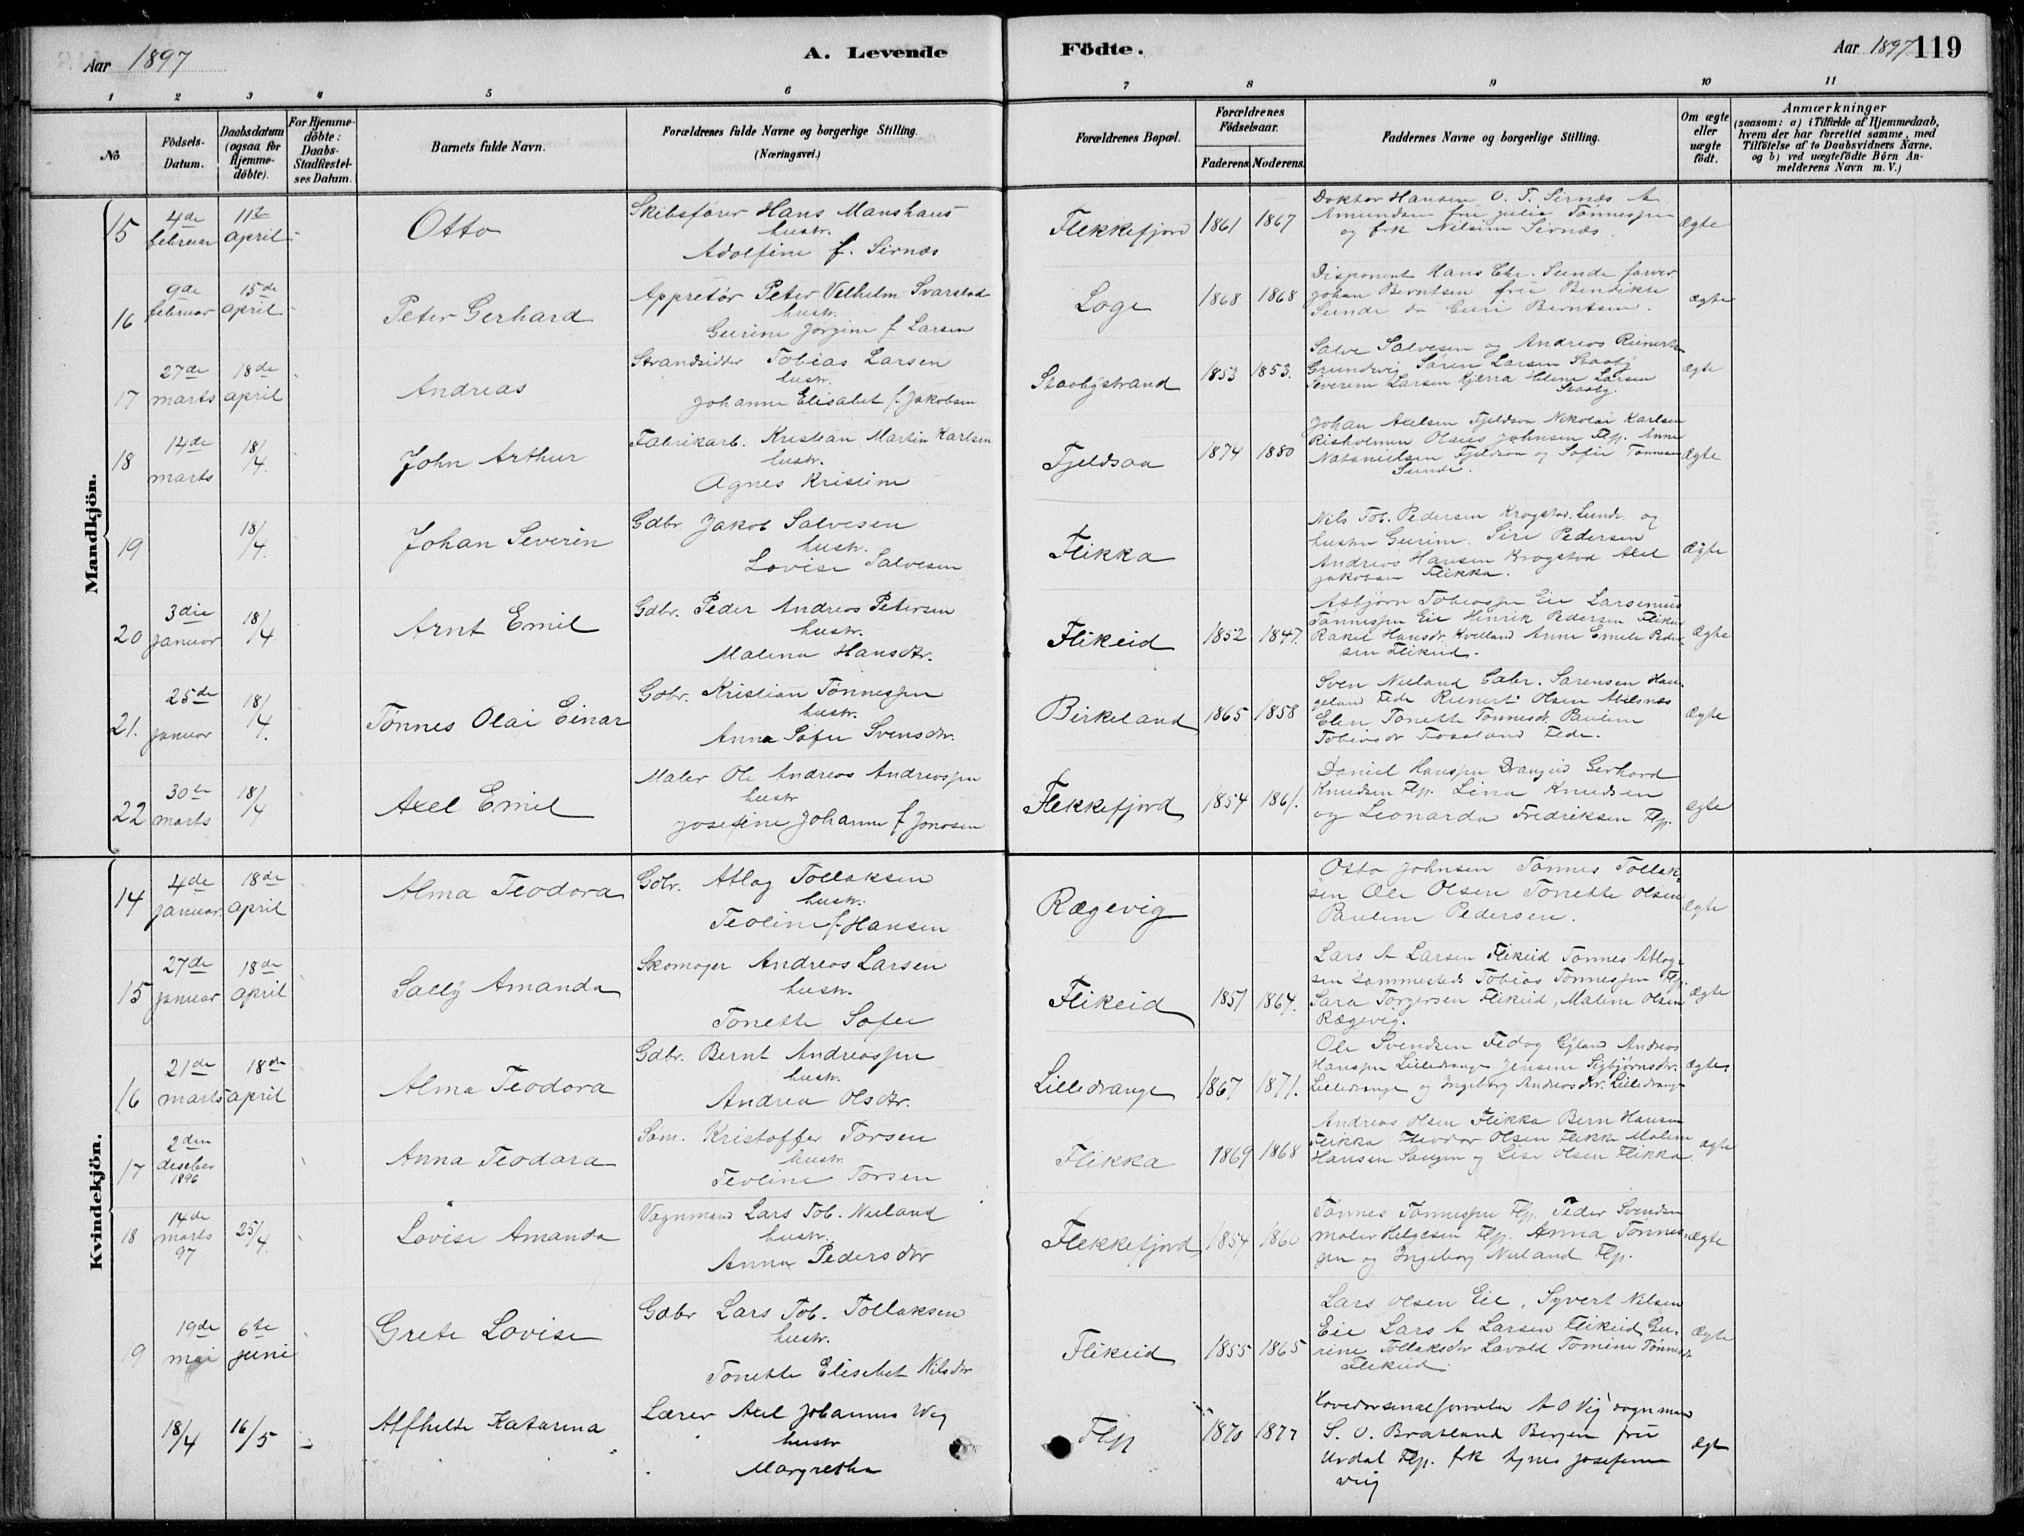 Aar 1897
A. Levende
Födte.
Aar 1897
119
1 2 3 4 5 6 7 8 9 10 11
No
Födsels-Datum.
Daabsdatum (ogsaa for Hjemmedöbte).
For Hjemmedöbte: Daabs-Stadfæstelses Datum.
Barnets fulde Navn.
Forældrenes fulde Navne og borgerlige Stilling. (Næringsvei.)
Forældrenes Bopæl.
Forældrenes Födselsaar.
Faderens Moderens.
Faddernes Navne og borgerlige Stilling.
Om ægte eller uægte født.
Anmærkninger
(saasom: a) i Tilfælde af Hjemmedaab,
hvem der har forrettet samme, med
Tilföielse af to Daabsvidners Navne.
og b) ved uægtefödte Börn An-
melderens Navn m. V.)
Mandkjön.
15 4de februar 11te april Otto
Skibsfører Hans Manshaus
hustr.
Adolfine f. Sirnæs
Flekkefjord 1861 1867
Doktor Hansen O. T. Sirnæs A.
Amundsen fru Julia Tønnessen
og frk Nilsine Sirnæs.
Ægte
16 9de februar 15de april Peter Gerhard
Appretør Peter Vilhelm Svarstad
hustr.
Gurine Jørgine f Larsen
Loge 1868 1868
Disponent Hans Chr. Sunde farver
Johan Berntsen frue Bendikte
Sunde do Guri Berntsen.
ægte
17 27de marts 18de april Andreas
Strandsidder Tobias Larsen
hustr.
Johanne Elisabet f. Jakobsen
Staabystrand 1853 1853.
Salve Salvesen og Andreas Reinert
Grundvig Søren Larsen Staaby
Severine Larsen Kjerra Helene Larsen
Staaby.
ægte
18 14de marts 18/4. John Arthur
Fabrikarb. Kristian Martin Karlsen
hustr.
Agnes Kristine
Fjeldsaa 1874 1880
Johan Axelsen Fjeldsaa Nikolai Karlsen
Risholmen Olaus Johnsen Flp. Anne
Natanielsen Fjeldsaa og Sofie Tønnesen
Sunde.
Ægte
19 18/4. Johan Severin
Gdbr. Jakob Salvesen
hustr.
Lovise Salvesen
Flikka
Nils Tob. Pedersen Krogstad. Sunde. og
hustru Gurine. Siri Pedersen
Andreas Hansen Krogstad Axel
Jakobsen Flikka.
ægte
20 3die januar 18/4 Arnt Emil
Gdbr. Peder Andreas Petersen
hustr.
Malena Hansdtr.
Flikeid 1852 1847.
Asbjørn Tobiassen Eie Larsenius
Tønnessen Eie Hinrik Pedersen Flikeid
Rakel Hansdtr. Kvelland Anne Emelie Peder-
sen Flikeid.
Ægte
21. 25de januar 18/4. Tønnes Olai Einar
Gdbr. Kristian Tønnessen
hustr.
Anna Sofie Svensdtr.
Birkeland 1865 1858
Sven Neland Gabr. Sørensen Hau-
geland Fede Reinert Olsen Abelsnæs
Elen Tonette Tønnesdtr Pauline
Tobiasdtr Fosseland Fede.
Ægte
22 30te marts 18/4 Axel Emil
Maler Ole Andreas Andreassen
hustr
Josefine Johanne f Jonasen
Flekkefjord 1854 1861.
Daniel Hanssen Drangeid Gerhard
Knudsen Flp. Lina Knudsen
og Leonarda Fredriksen Flp.
ægte
Kvindekjön.
14 4de januar. 18de april Alma Teodora
Gdbr. Atlag Tollaksen
hustr.
Teoline f. Hansen
Rægevig
Otto Johnsen Tønnes Tollak-
sen Ole Olsen Tonette Olsen
Pauline Pedersen.
Ægte
15 27de januar 18de april Sally Amanda
Skomager Andreas Larsen
hustr.
Tonette Sofie
Flikeid 1857 1864.
Lars A Larsen Flikeid Tønnes Atlag-
sen sammesteds Tobias Tønnessen Flp.
Sara Torgersen Flikeid, Malene Olsen
Rægevig.
Ægte
16 21de marts 18de april Alma Teodora
Gdbr. Bernt Andreassen
hustr.
Andrea Olsdtr.
Lilledrange 1867 1871.
Ole Svendsen Fedog Gyland Andreas
Hanssen Lilledrange Jensine Sigbjørnsdtr.
Lilledrange og Ingeborg Andreasdtr. Lilledrange
Ægte
17 2den desebr 1896 Anna Teodora
Søm. Kristoffer Torsen
hustr.
Teoline Torsen
Flikka 1869 1868
Andreas Olsen Flikka Bern Hansen
Flikka Theodor Olsen Flikka Malene
Hansen og Lise Olsen Flikka
ægte
18 14de marts 97 25/4. Lovise Amanda
Vognmand Lars Tob. Neland
hustr.
Anna Pedersdtr
Flekkefjord 1854 1860
Tønnes Tønnessen Flp. Peder Svendsen
maler Helgesen Flp. Anna Tønnes-
sen og Ingeborg Neland Flp.
Ægte
9 19de mai 6te juni Grete Lovise
Gdbr Lars Tob. Tollaksen
hustr.
Tonette Elisebet Nilsdtr
Flikeid 1855 1865
Lars Olsen Eie, Syvert Nilsen
Eie Lars A Larsen Flikeid Gu-
rine Tollaksdtr Lavold Tomine Tønnesdt
Flikeid.
Ægte
18/4 16/5 Alfhilde Katarina
Lærer Axel Johannes Wig
hustr
Margretha
Flp 1870 1877
A O Vig vognmand
S. O. Bratland Bergen fru
Urdal Flp. frk Agnes Josefine
Viig
Ægt